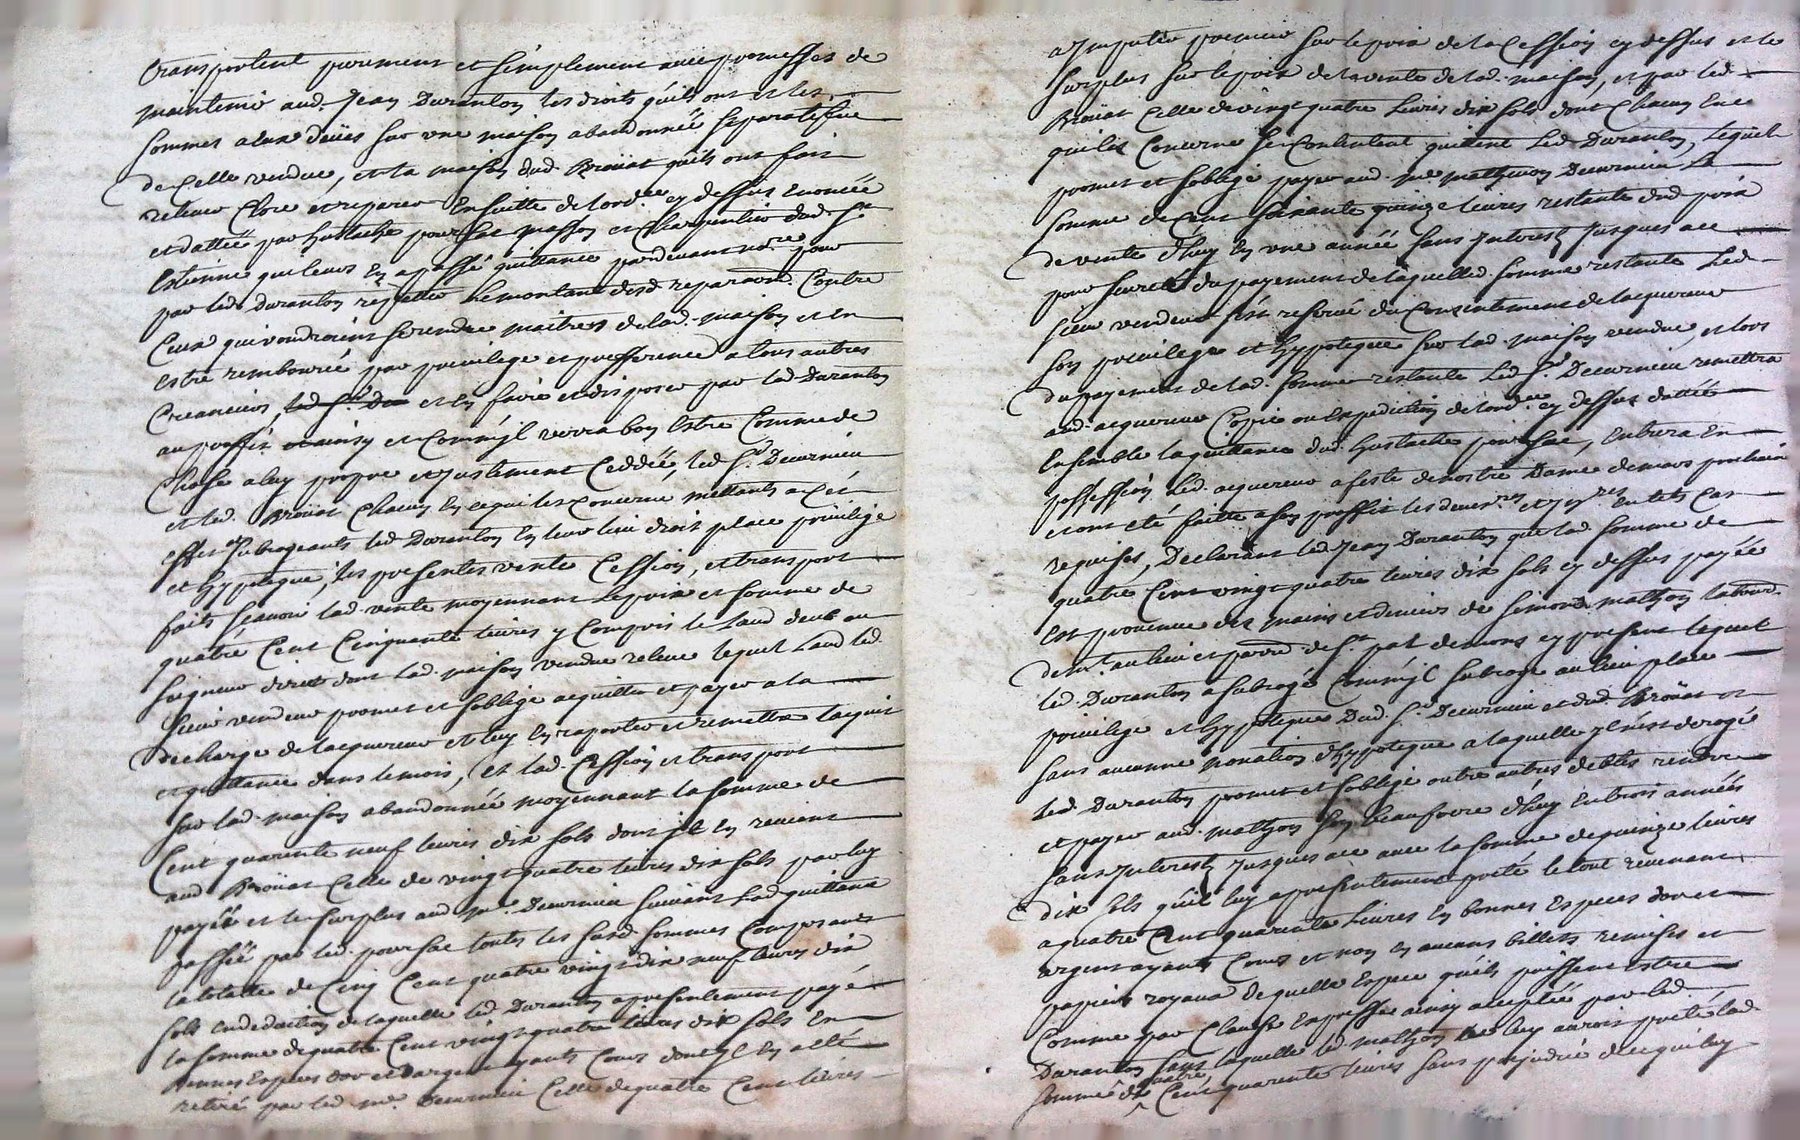 transportent purement et simplement avec promesses de
maintenir aud. Jean Duranton les droits qu'ils ont et les
sommes a eux deües sur une maison abandonnée separatifue
de Celle vendue, et la maison dud. Broüat qu'ils ont fait
relever Clore et reparer Ensuitte de lord.ce cy dessus Enoncée
et dattée par hustache poursat masson et Charpentier dud. St
Estienne qui leurs En a passé quittance pardevant no.re pour
par led. Duranton repetter Le montant desd. reparaõns. Contre
Ceux qui voudroient se rendre maitres de lad. maison et en
estre remboursé par privilege et prefference a tous autres
Creanciers, led. Sr. De et En faire et disposer par led Duranton
au proffit et Comm'jl verra bon Estre Comme de
Chose a luy propre et justement Ceddée, led. Sr. Decurnieu
et led. Broüat Chacun En ce qui les Concerne mettants a Cet
effet et subrogeants led. Duranton En leur lieu droit place privilege
et hypoteque, les presentes vente Cession, et transport
faits scavoir lad. vente moyennant Le prix et somme de
quatre Cent Cinquante livres y Compris le Laud deub au
seigneur direct dont lad. maison vendue releve lequel Laud led.
sieur vendeur promet et s'oblige acquitter et payer a la
decharge de lacquereur et luy En raporter et remettre lacquit
et quittance dans le mois, et lad. Cession et transport
sur lad. maison abandonnée moyennant la somme de
Cent quarente neuf livres dix sols dont jl En revient
aud Broüat Celle de vingt quatre livres dix sols par luy
payée et le surplus aud Me. Decurnieu suivant Lad quittance
passée par led. poursat toutes les susd. sommes Composant
la totalle de Cinq Cent quatre vingt dix neuf livres dix
sols En deduction de laquelle led. Duranton a presentement payé
la somme de quatre Cent vingt quatre livres dix sols En
bonnes Especes dor et dargent ayants Cours dont jl En a été
retiré par led. Me. Decurnieu Celle de quatre Cent livres
a Imputer premier sur le prix de la Cession cy dessus et le
surplus sur le prix de la vente de lad. maison, et par led.
Broüat Celle de vingt quatre Livres dix sols dont Chacun En ce
qui les Concerne se Contentent quittent Led. Duranton, lequel
promet et soblige payer aud. Me. Decurnieu La
somme de Cent soixante quinze livres restante dud. prix
de vente d'huy En une année sans Interest jusques a ce
pour seureté du payement de laquelled. somme restante Led.
sieur vendeur s'est reservé du Consentement de lacquereur
son privilege et hypoteque sur lad. maison vendue, et lors
du payement de lad. somme restante Led. Sr. Decurnieu remettra
aud. acquereur Copie ou Expedition de lord.ce cy dessus dattée
Ensemble la quittance dud. hustache poursat, Entrera En
possession Led. acquereur a feste de nostre Dame de mars prochain
et ont eté faitte a son proffit les en tels Cas
requises, Declarant led Jean Duranton que lad. somme de
quatre Cent vingt quatre livres dix sols cy dessus payée
Est provenue des mains et deniers de Simond mathon
de au lieu et parr.e de St. pal de mons cy present lequel
led. Duranton a subrogé Comm'jl subroge au lieu place
privilege et hypoteque Dud. Sr. Decurnieu et dud. Broüat
sans aucune novation d'hypoteque a laquelle jl n'est derogé
Led. Duranton promet et soblige outre autres debtes rendre
et payer aud. mathon son beaufrere d'huy En trois années
sans Interest jusques a ce avec la somme de quinze livres
dix sols qu'il luy a presentement preté le tout revenant
a quatre Cent quarente Livres En bonnes Especes dor et
argent ayants Cours et non En aucuns billets remises et
papiers royaux de quelle Espece qu'ils puissent estre
Comme par Clause Expresse ainsy acceptée par led.
Duranton sans laquelle led. mathon ne luy auroit preté lad.
somme de quatre Cent quarente livres sans prejudice de ce qui luy